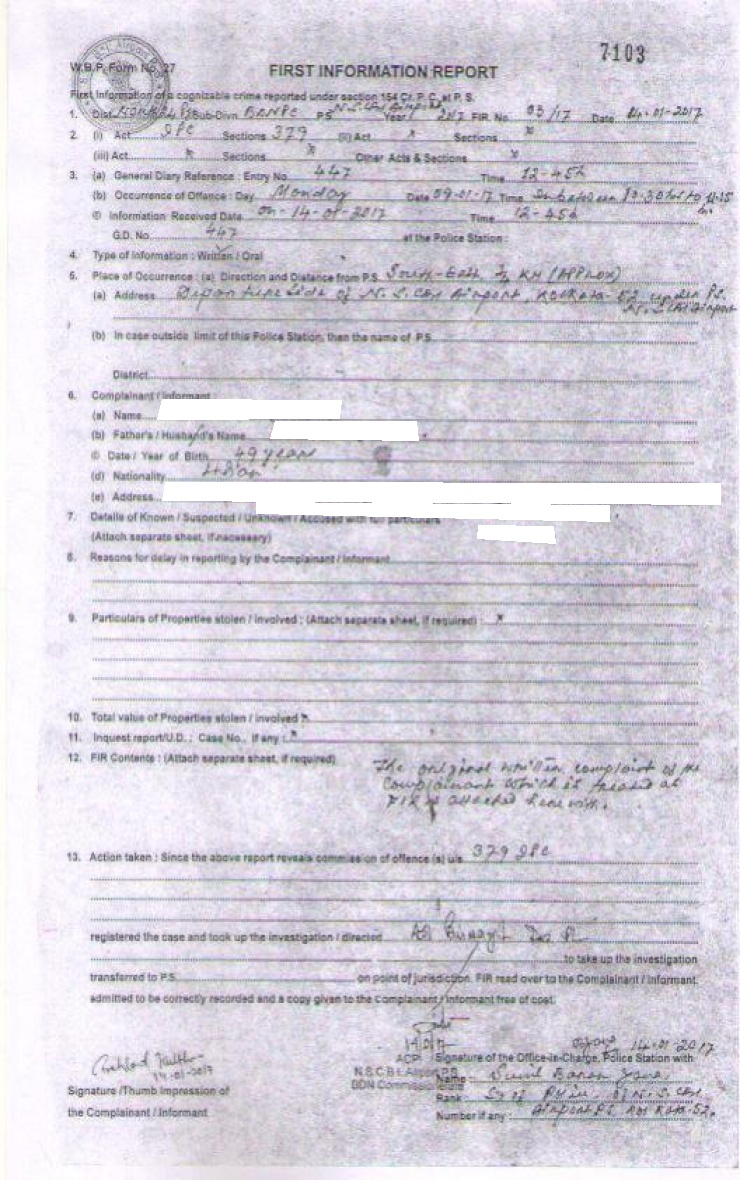 7103
W.B.P. Form No. 27
FIRST INFORMATION REPORT
First Information of a cognizable crime reported under section 154 Cr. P. C. at P. S.
1. Dist. Sub-Divn. P.S. N.S.C.B.I Airport Year 2017 FIR No. 03/17 Date 14-01-2017
2. (i) Act IPC Sections 379 (ii) Act x Sections x
(iii) Act x Sections x Other Acts & Sections x
3. (a) General Diary Reference : Entry No. 447 Time 12-45h
(b) Occurrence of Offence : Day Monday Date 09-01-17 Time In between
© Information Received Date on-14-01-2017 Time 12-45h
G.D. No. 447 at the Police Station :
4. Type of Information : Written / Oral
5. Place of Occurrence : (a) Direction and Distance from P.S. South-East KM (APProx)
(a) Address Departure Side of N.S.CBI Airport, Kolkata-52 under P.S.
N.S.CBI Airport
(b) In case outside limit of this Police Station, then the name of P.S.
District
6. Complainant / Informant :
(a) Name
(b) Father's / Husband's Name
© Date / Year of Birth 49 years
(d) Nationality Indian
(e) Address
7. Details of Known / Suspected / Unknown / Accused with full particulars
(Attach separate sheet, if necessary)
8. Reasons for delay in reporting by the Complainant / Informant
9. Particulars of Properties stolen / involved : (Attach separate sheet, if required) : x
10. Total value of Properties stolen / involved x
11. Inquest report/U.D. : Case No.. if any : x
12. FIR Contents : (Attach separate sheet, if required) The original written complaint of the
Complainant which is treated as
FIR is attached herewith.
13. Action taken : Since the above report reveals commission of offence (s) u/s. 379 IPC
registered the case and took up the investigation / directed
to take up the investigation
transferred to P.S. on point of jurisdiction. FIR read over to the Complainant / Informant,
admitted to be correctly recorded and a copy given to the Complainant / Informant free of cost.
14-01-2017
14.01.2017
ACP Signature of the Office-in-Charge, Police Station with
N.S.C.B.I. Airport P.S.
Name : Sunil Baran
Signature /Thumb Impression of
Rank : of N.S.CBI
the Complainant / Informant
Number if any : Airport P.S. Kolkata-52.